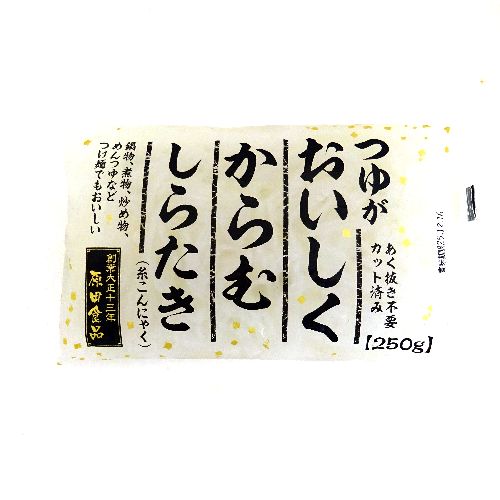 つゆが
おいしく
からむ
しらたき
(糸こんにゃく)
あく抜き不要
カット済み
【250g】
鍋物、煮物、炒め物、
めんつゆなど
つけ麺でもおいしい
創業大正十三年
原田食品